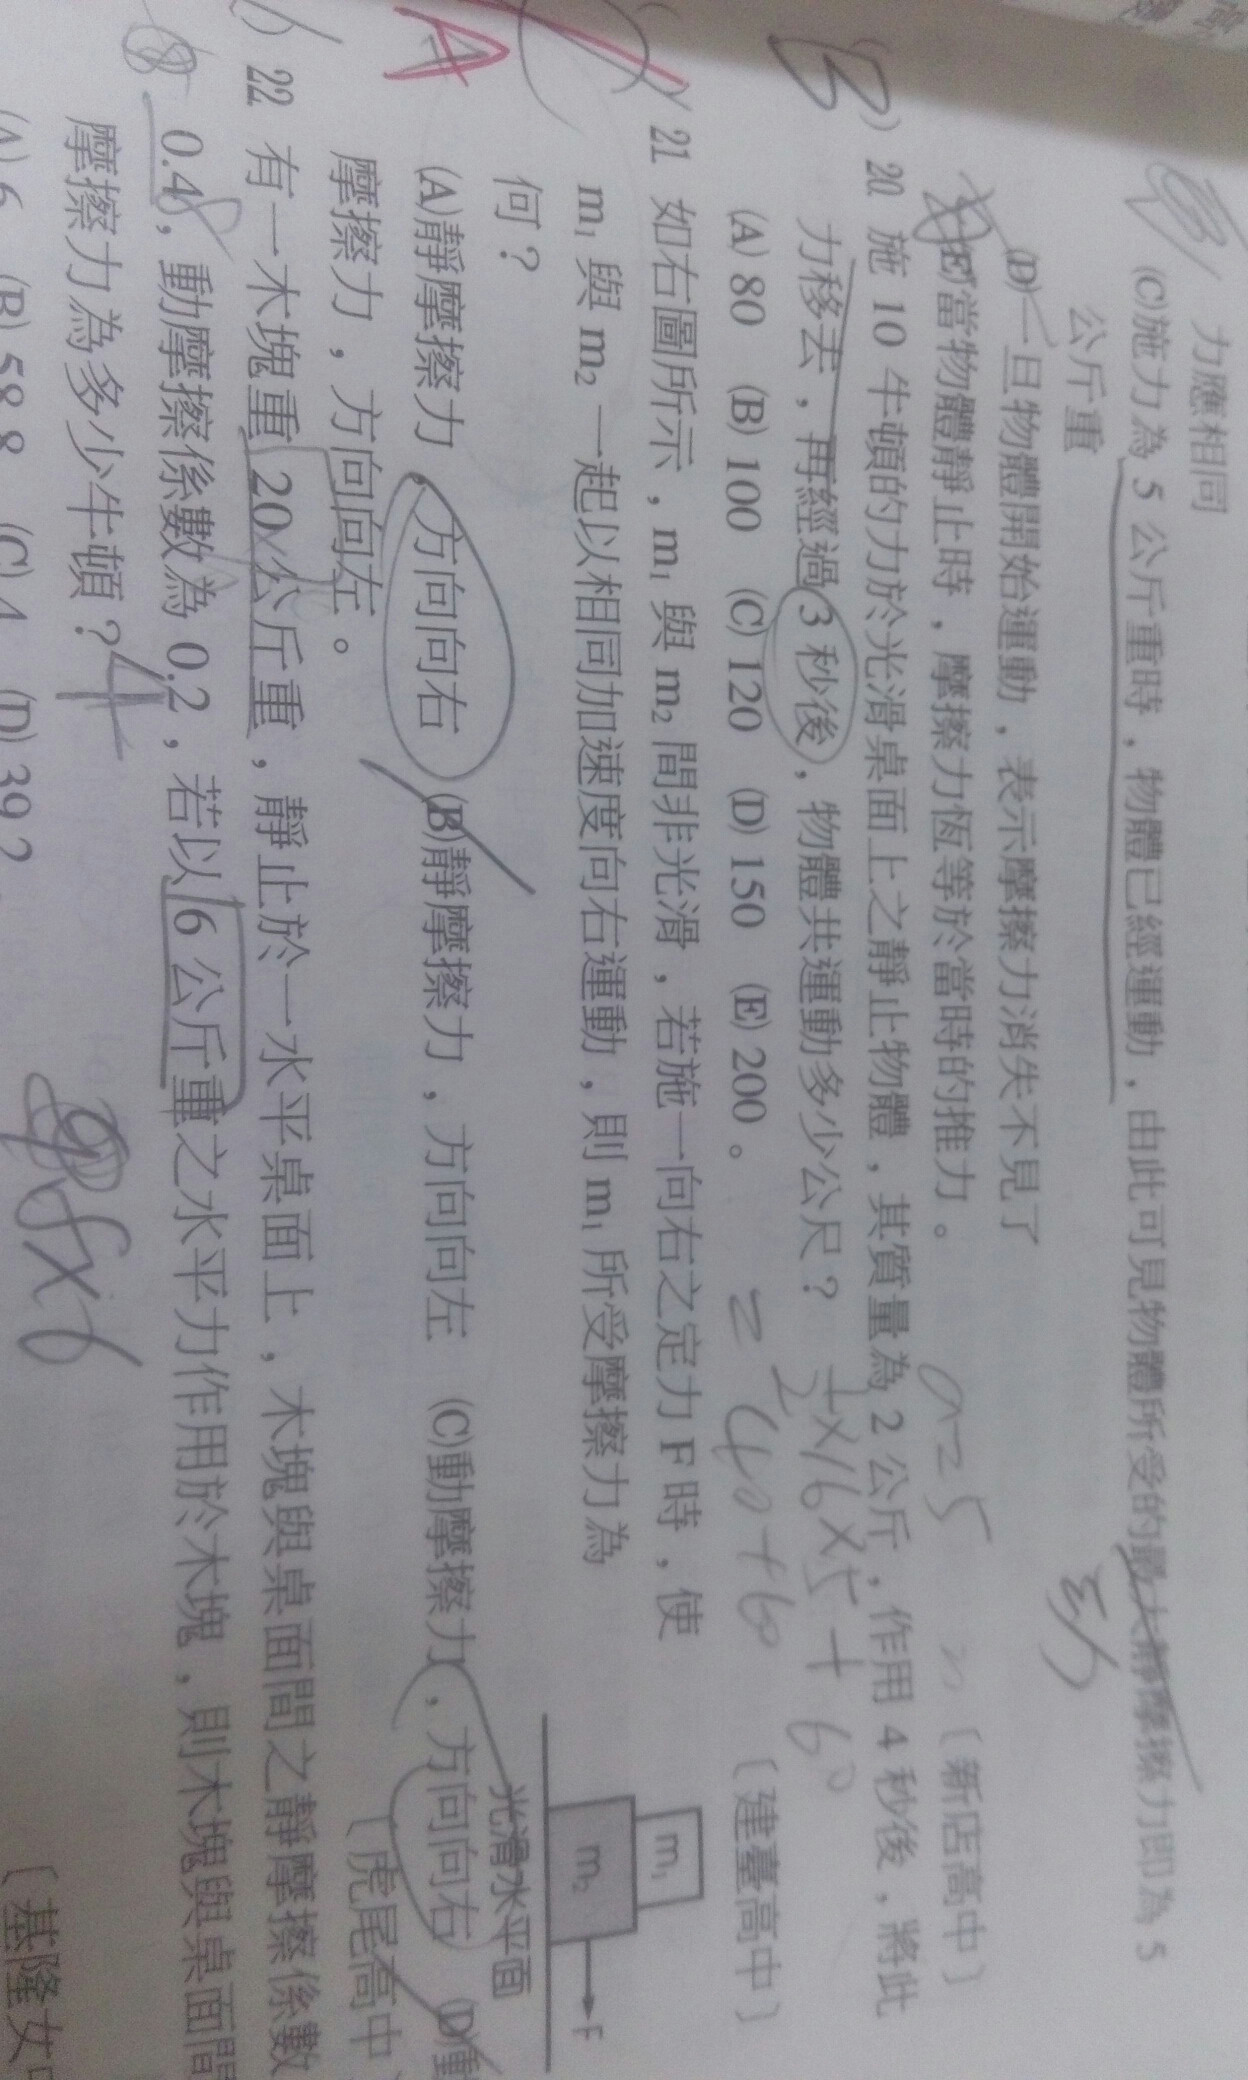 力應相同
(C)施力為 5 公斤重時，物體已經運動，由此可見物體所受的最大靜摩擦力即為 5
公斤重
(D)一旦物體開始運動，表示摩擦力消失不見了
(E)當物體靜止時，摩擦力恆等於當時的推力。
〔新店高中〕
a=5
20 施 10 牛頓的力於光滑桌面上之靜止物體，其質量為 2 公斤，作用 4 秒後，將此
力移去，再經過 3 秒後，物體共運動多少公尺？
½×16×5+60
(A) 80 (B) 100 (C) 120 (D) 150 (E) 200。
=40+60
〔建臺高中〕
21 如右圖所示，m₁ 與 m₂ 間非光滑，若施一向右之定力 F 時，使
m₁ 與 m₂ 一起以相同加速度向右運動，則 m₁ 所受摩擦力為
何？
m₁
m₂
F
光滑水平面
A
(A)靜摩擦力，方向向右 (B)靜摩擦力，方向向左 (C)動摩擦力，方向向右 (D)動
摩擦力，方向向左。
〔虎尾高中
22 有一木塊重 20 公斤重，靜止於一水平桌面上，木塊與桌面間之靜摩擦係數
0.4，動摩擦係數為 0.2，若以 6 公斤重之水平力作用於木塊，則木塊與桌面間
摩擦力為多少牛頓？
4
(A) 6 (B) 58.8 (C) 4 (D) 39.2
〔基隆女中